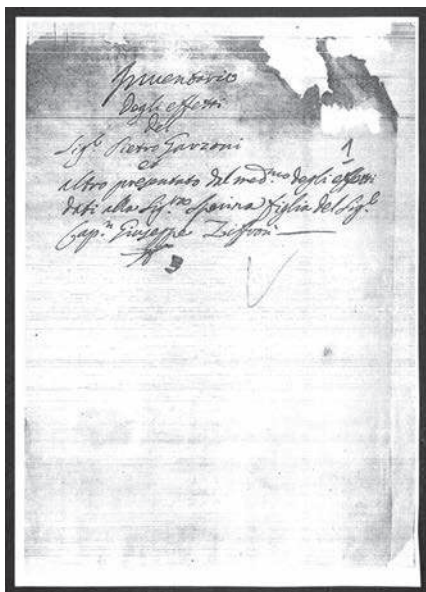 Inventario
degli effetti
del
Sig.r Pietro Garzoni
ed
1
altro presentato dal med.mo degli effetti
dati alla Sig.ra Sperina figlia del Sig.r
Cap.n Giuseppe